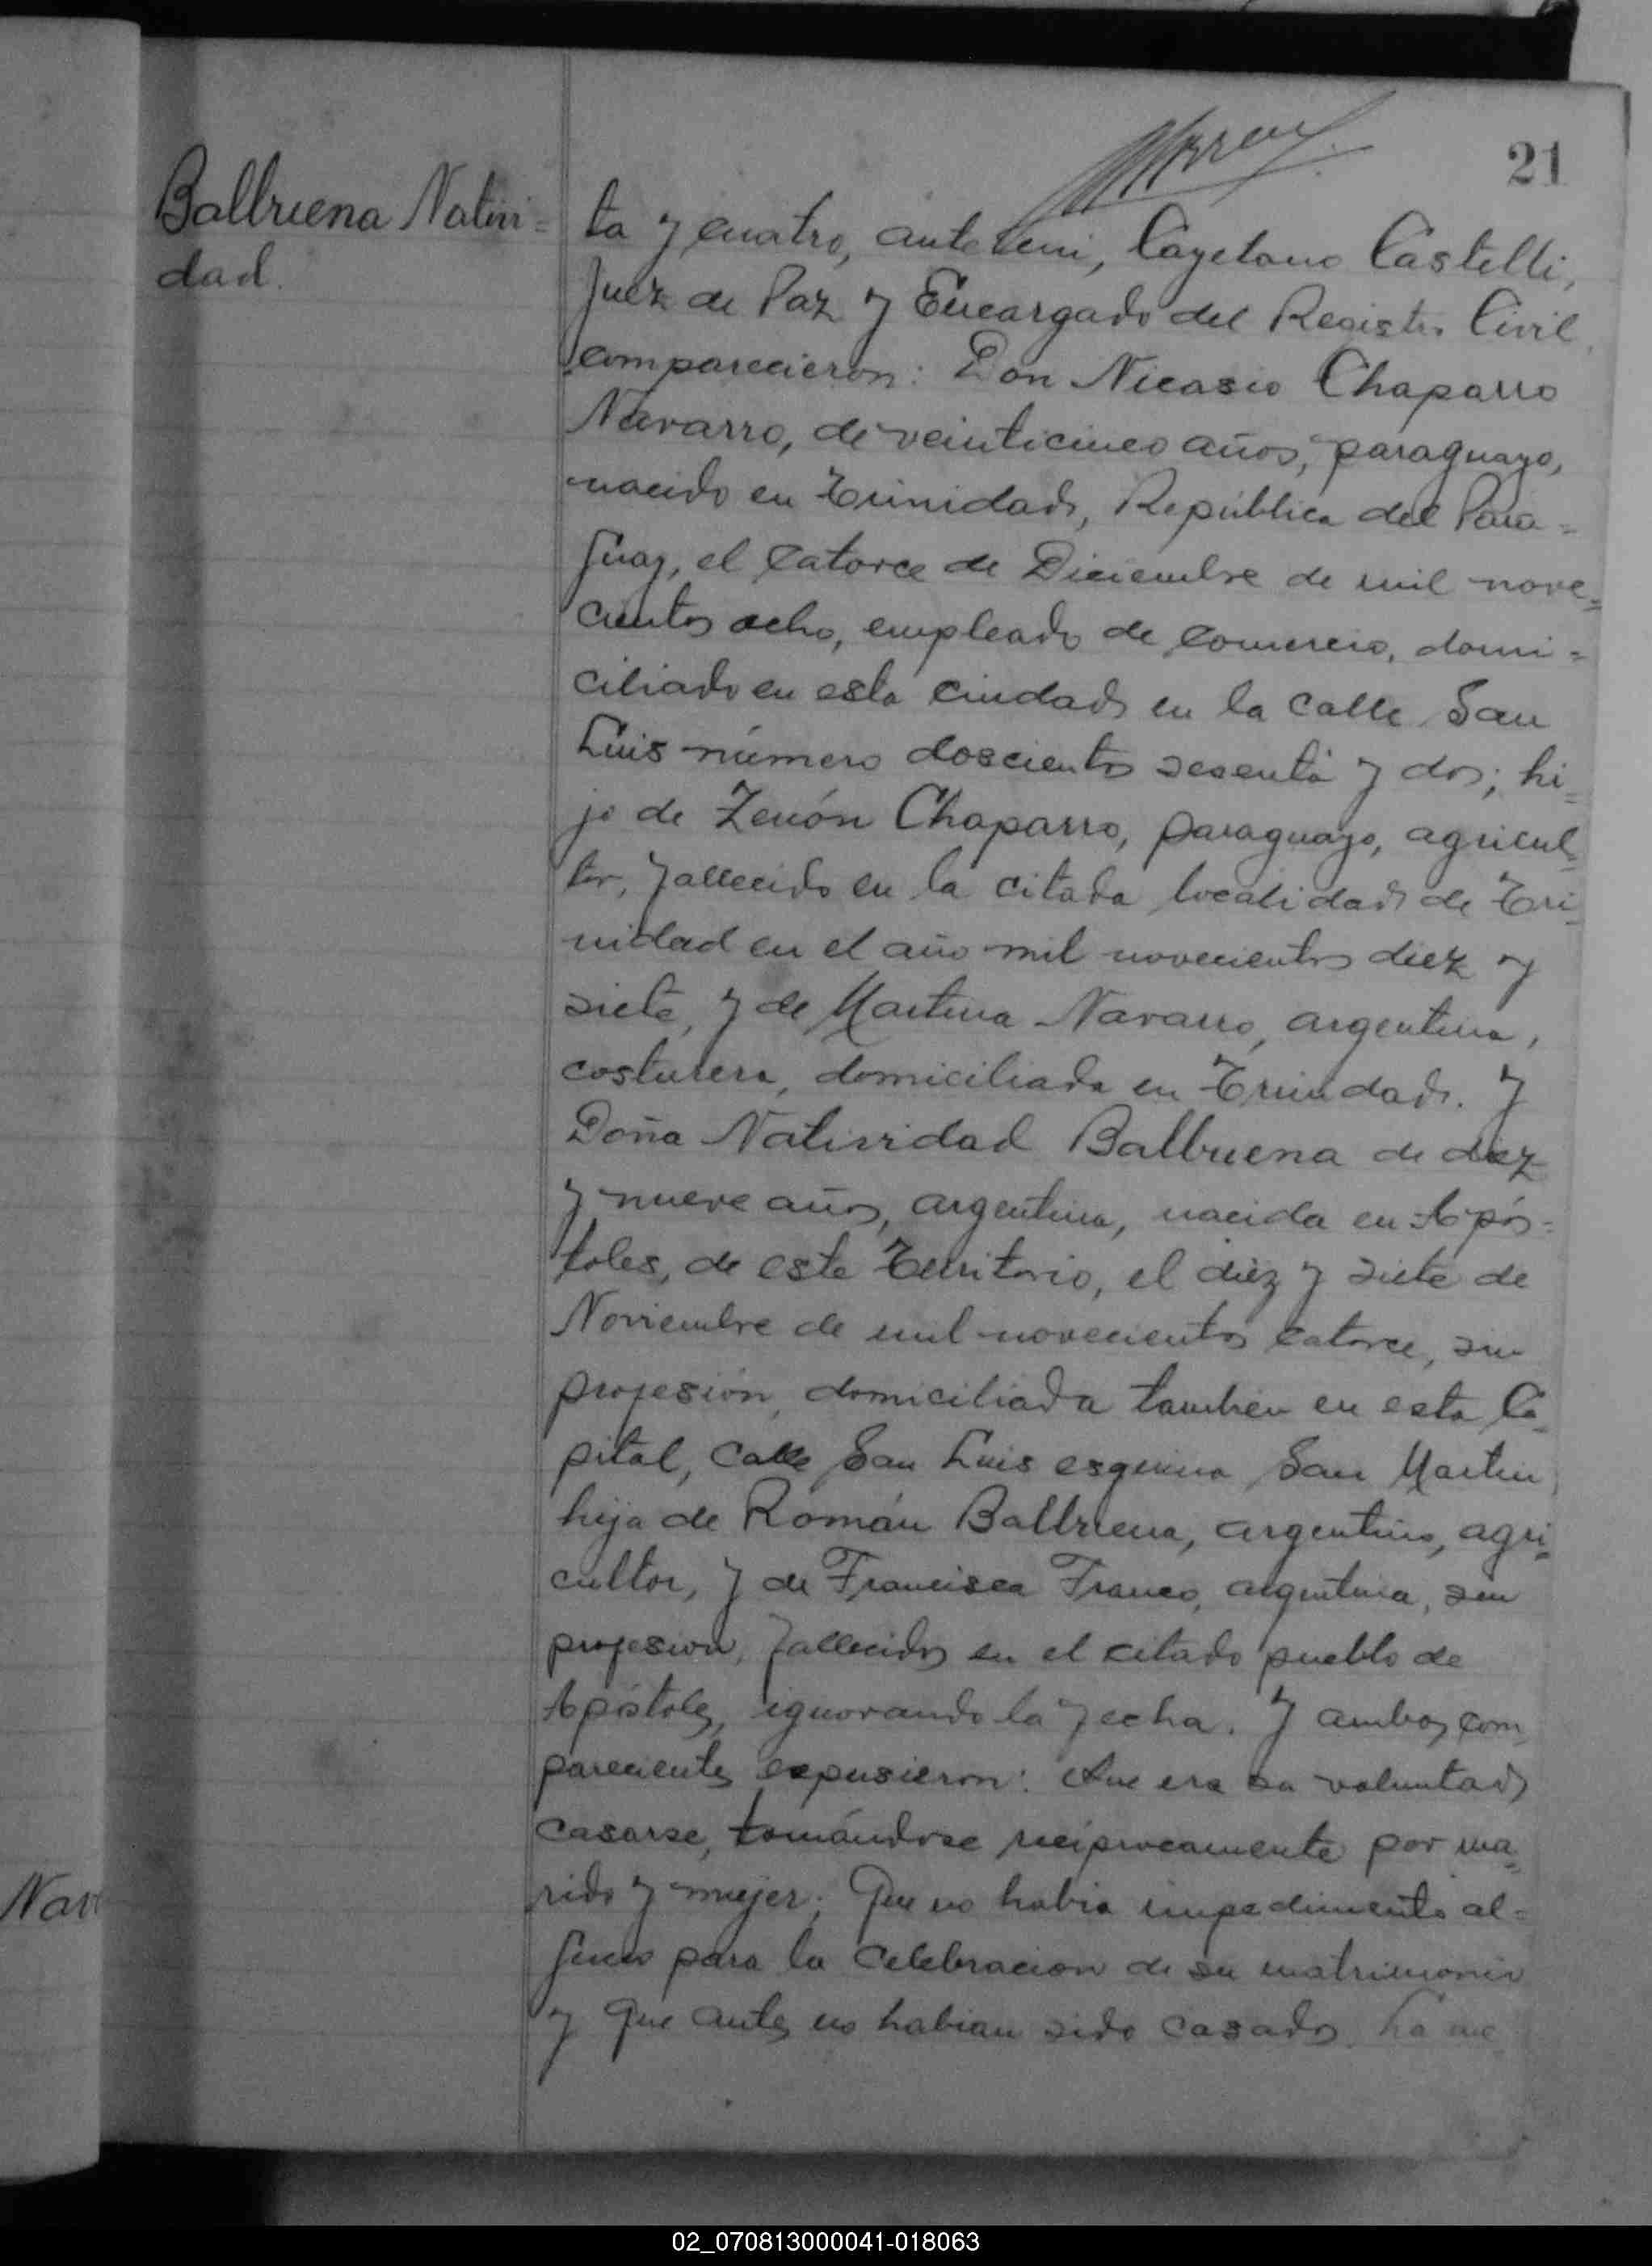 21
Balbuena Nativi=
dad.
ta y cuatro, ante mi, Cayetano Castelli,
Juez de Paz y Encargado del Registro Civil,
comparecieron: Don Nicasio Chaparro
Navarro, de veinticinco años, paraguayo,
nacido en Trinidad, República del Para=
guay, el catorce de Diciembre de mil nove=
cientos ocho, empleado de comercio, domi=
ciliado en esta ciudad en la calle San
Luis número doscientos sesenta y dos; hi=
jo de Zenón Chaparro, paraguayo, agricul=
tor, fallecido en la citada localidad de Tri=
nidad en el año mil novecientos diez y
siete, y de Martina Navarro, argentina,
costurera, domiciliada en Trinidad. Y
Doña Natividad Balbuena de diez
y nueve años, argentina, nacida en Após=
toles, de este Territorio, el diez y siete de
Noviembre de mil novecientos catorce, sin
profesión, domiciliada tambien en esta Ca=
pital, calle San Luis esquina San Martin,
hija de Román Balbuena, argentino, agri=
cultor, y de Francisca Franco, argentina, sin
profesion, fallecidos en el citado pueblo de
Apóstoles, ignorando la fecha. Y ambos com=
parecientes expusieron: Que era su voluntad
casarse, tomándose reciprocamente por ma=
rido y mujer; Que no habia impedimento al=
guno para la celebracion de su matrimonio
y que antes no habian sido casados.
Nav
02_070813000041-018063